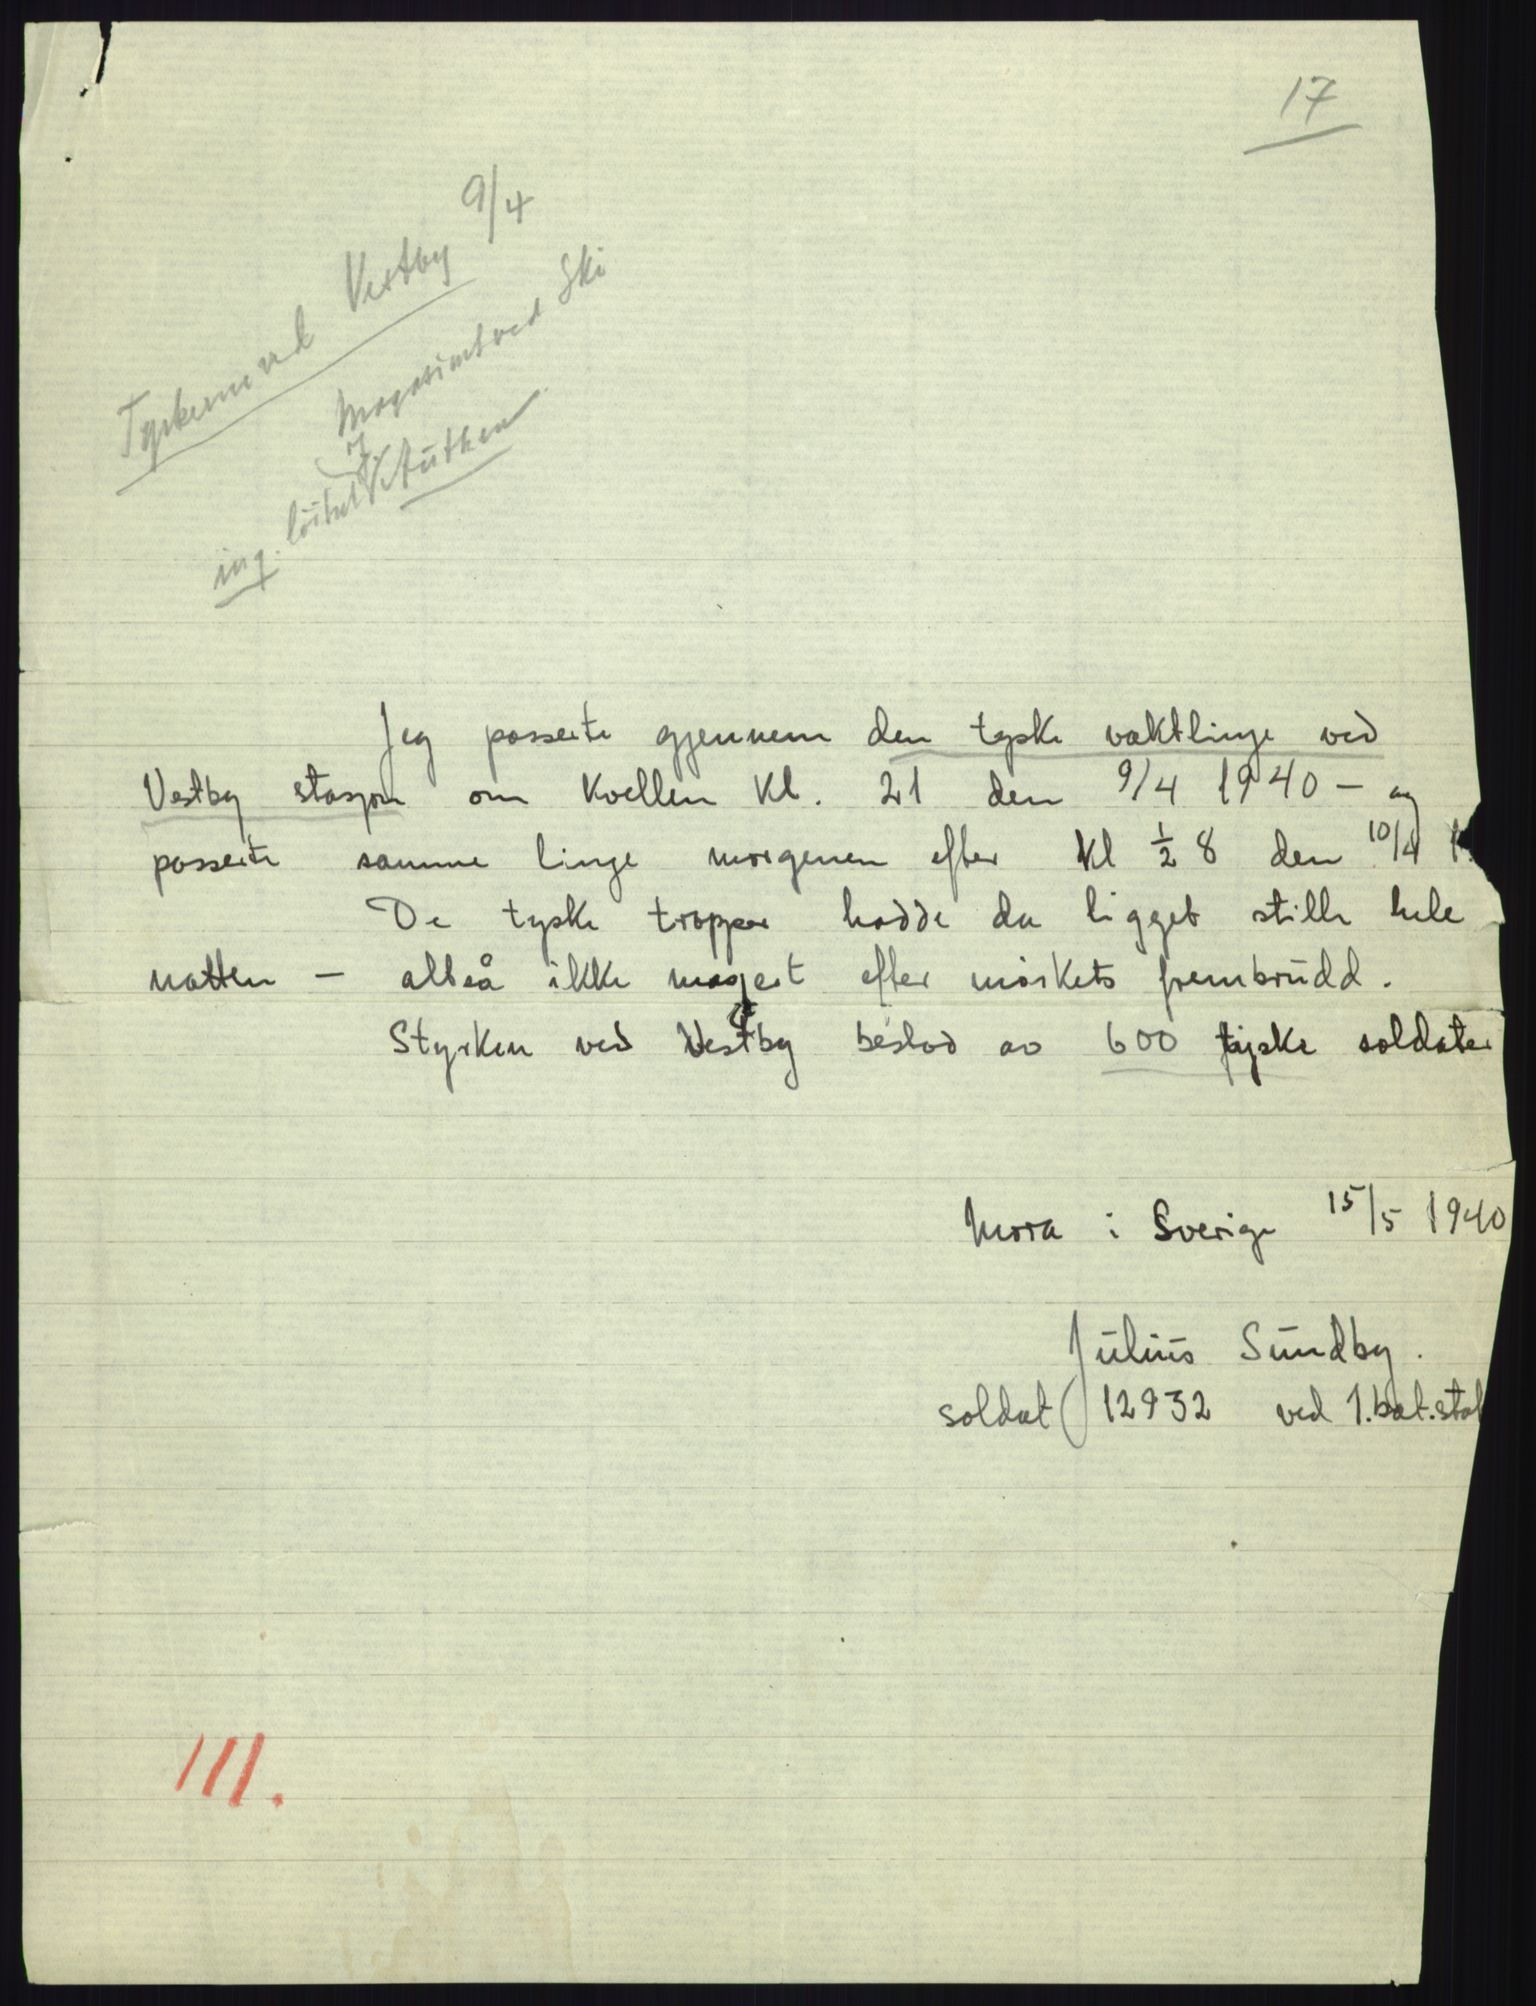 17
Tyskerne ved Vestby 9/4
Magasinet ved Ski
og
ing. löitnt
Jeg passerte gjennem den tyske vaktlinje ved
Vestby stasjon om kvellen kl. 21 den 9/4 1940 – og
passerte samme linje morgenen efter kl ½ 8 den 10/4
De tyske tropper hadde da ligget stille hele
natten – altså ikke masjert efter mørkets frembrudd.
Styrken ved Vestby bestod av 600 tyske soldater
Mora i Sverige 15/5 1940
Julius Sundby.
soldat 12932 ved 1.bat.stab
III.